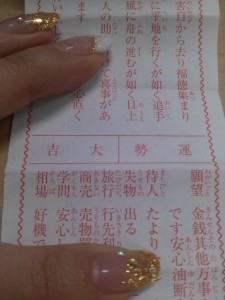 自から去り福徳集まり
に平地を行くが如く追手
風に舟の進むが如く目上
人の助 て喜事があ
いし 心直く
運勢 大吉
願望 金銭其他万事
です安心油断
待人 たより
失物 出る
旅行 行先利
商売 売物買
学問 安心し
相場 好機で